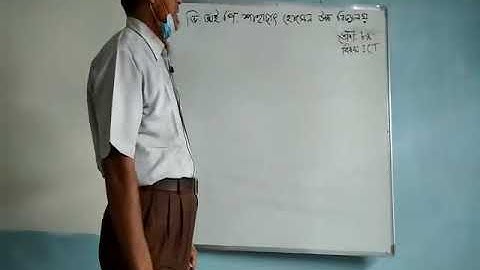 ডি. আই. পি শাহাদাৎ হোসেন উচ্চ বিদ্যালয়
শ্রেণী:
বিষয়: ICT